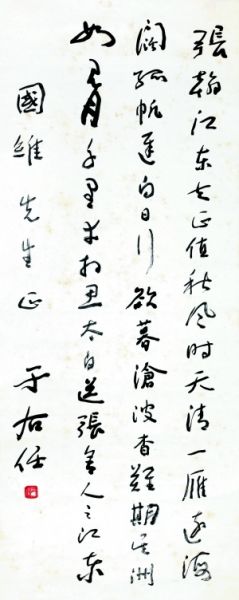 張翰江東去正值秋風時天清一雁遠海
闊孤帆遲白日行欲暮滄波杳難期吳洲
如見月千里幸相思太白送張舍人之江東
國維先生正 于右任